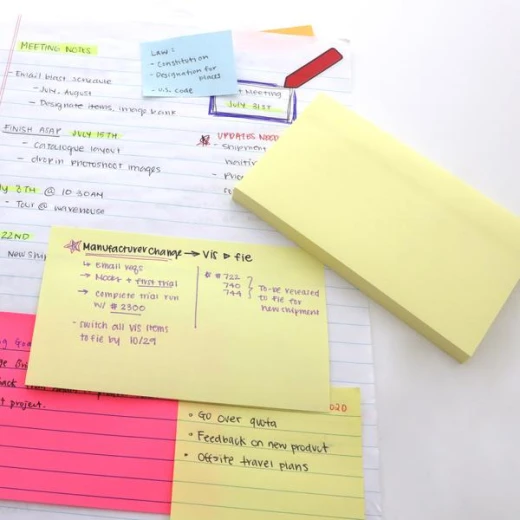 MEETING NOTES
- Email blast schedule
- July, August
- Designate items, image bank
FINISH ASAP JULY 15TH
- Catalogue layout
- drop in photoshoot images
8TH @ 10:30AM
- Tour @ warehouse
22ND
LAW:
- Constitution
- Designation for places
- U.S. Code
Meeting
July 31ST
UPDATES
- Shipment
Manufacturer change → VIS ▷ fie
↳ Email regs
→ Mocks + first trial
→ complete trial run
w/ #2300
- switch all VIS items
to fie by 10/29
# 722
740
744
To be released
to fie for
new shipment
t project.
• Go over quota
• Feedback on new product
• Offsite travel plans